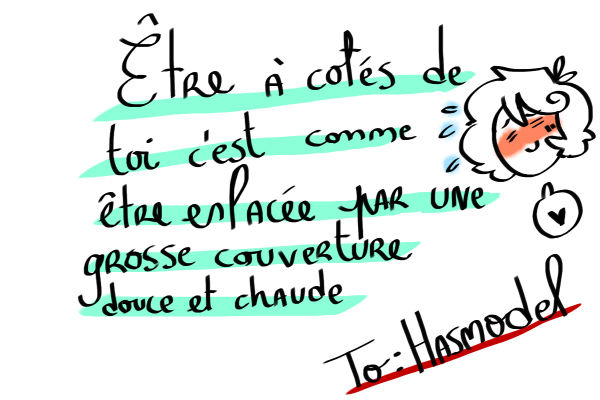 Être à cotés de
toi c'est comme
être enlacée par une
grosse couverture
douce et chaude
To: Hasmodel